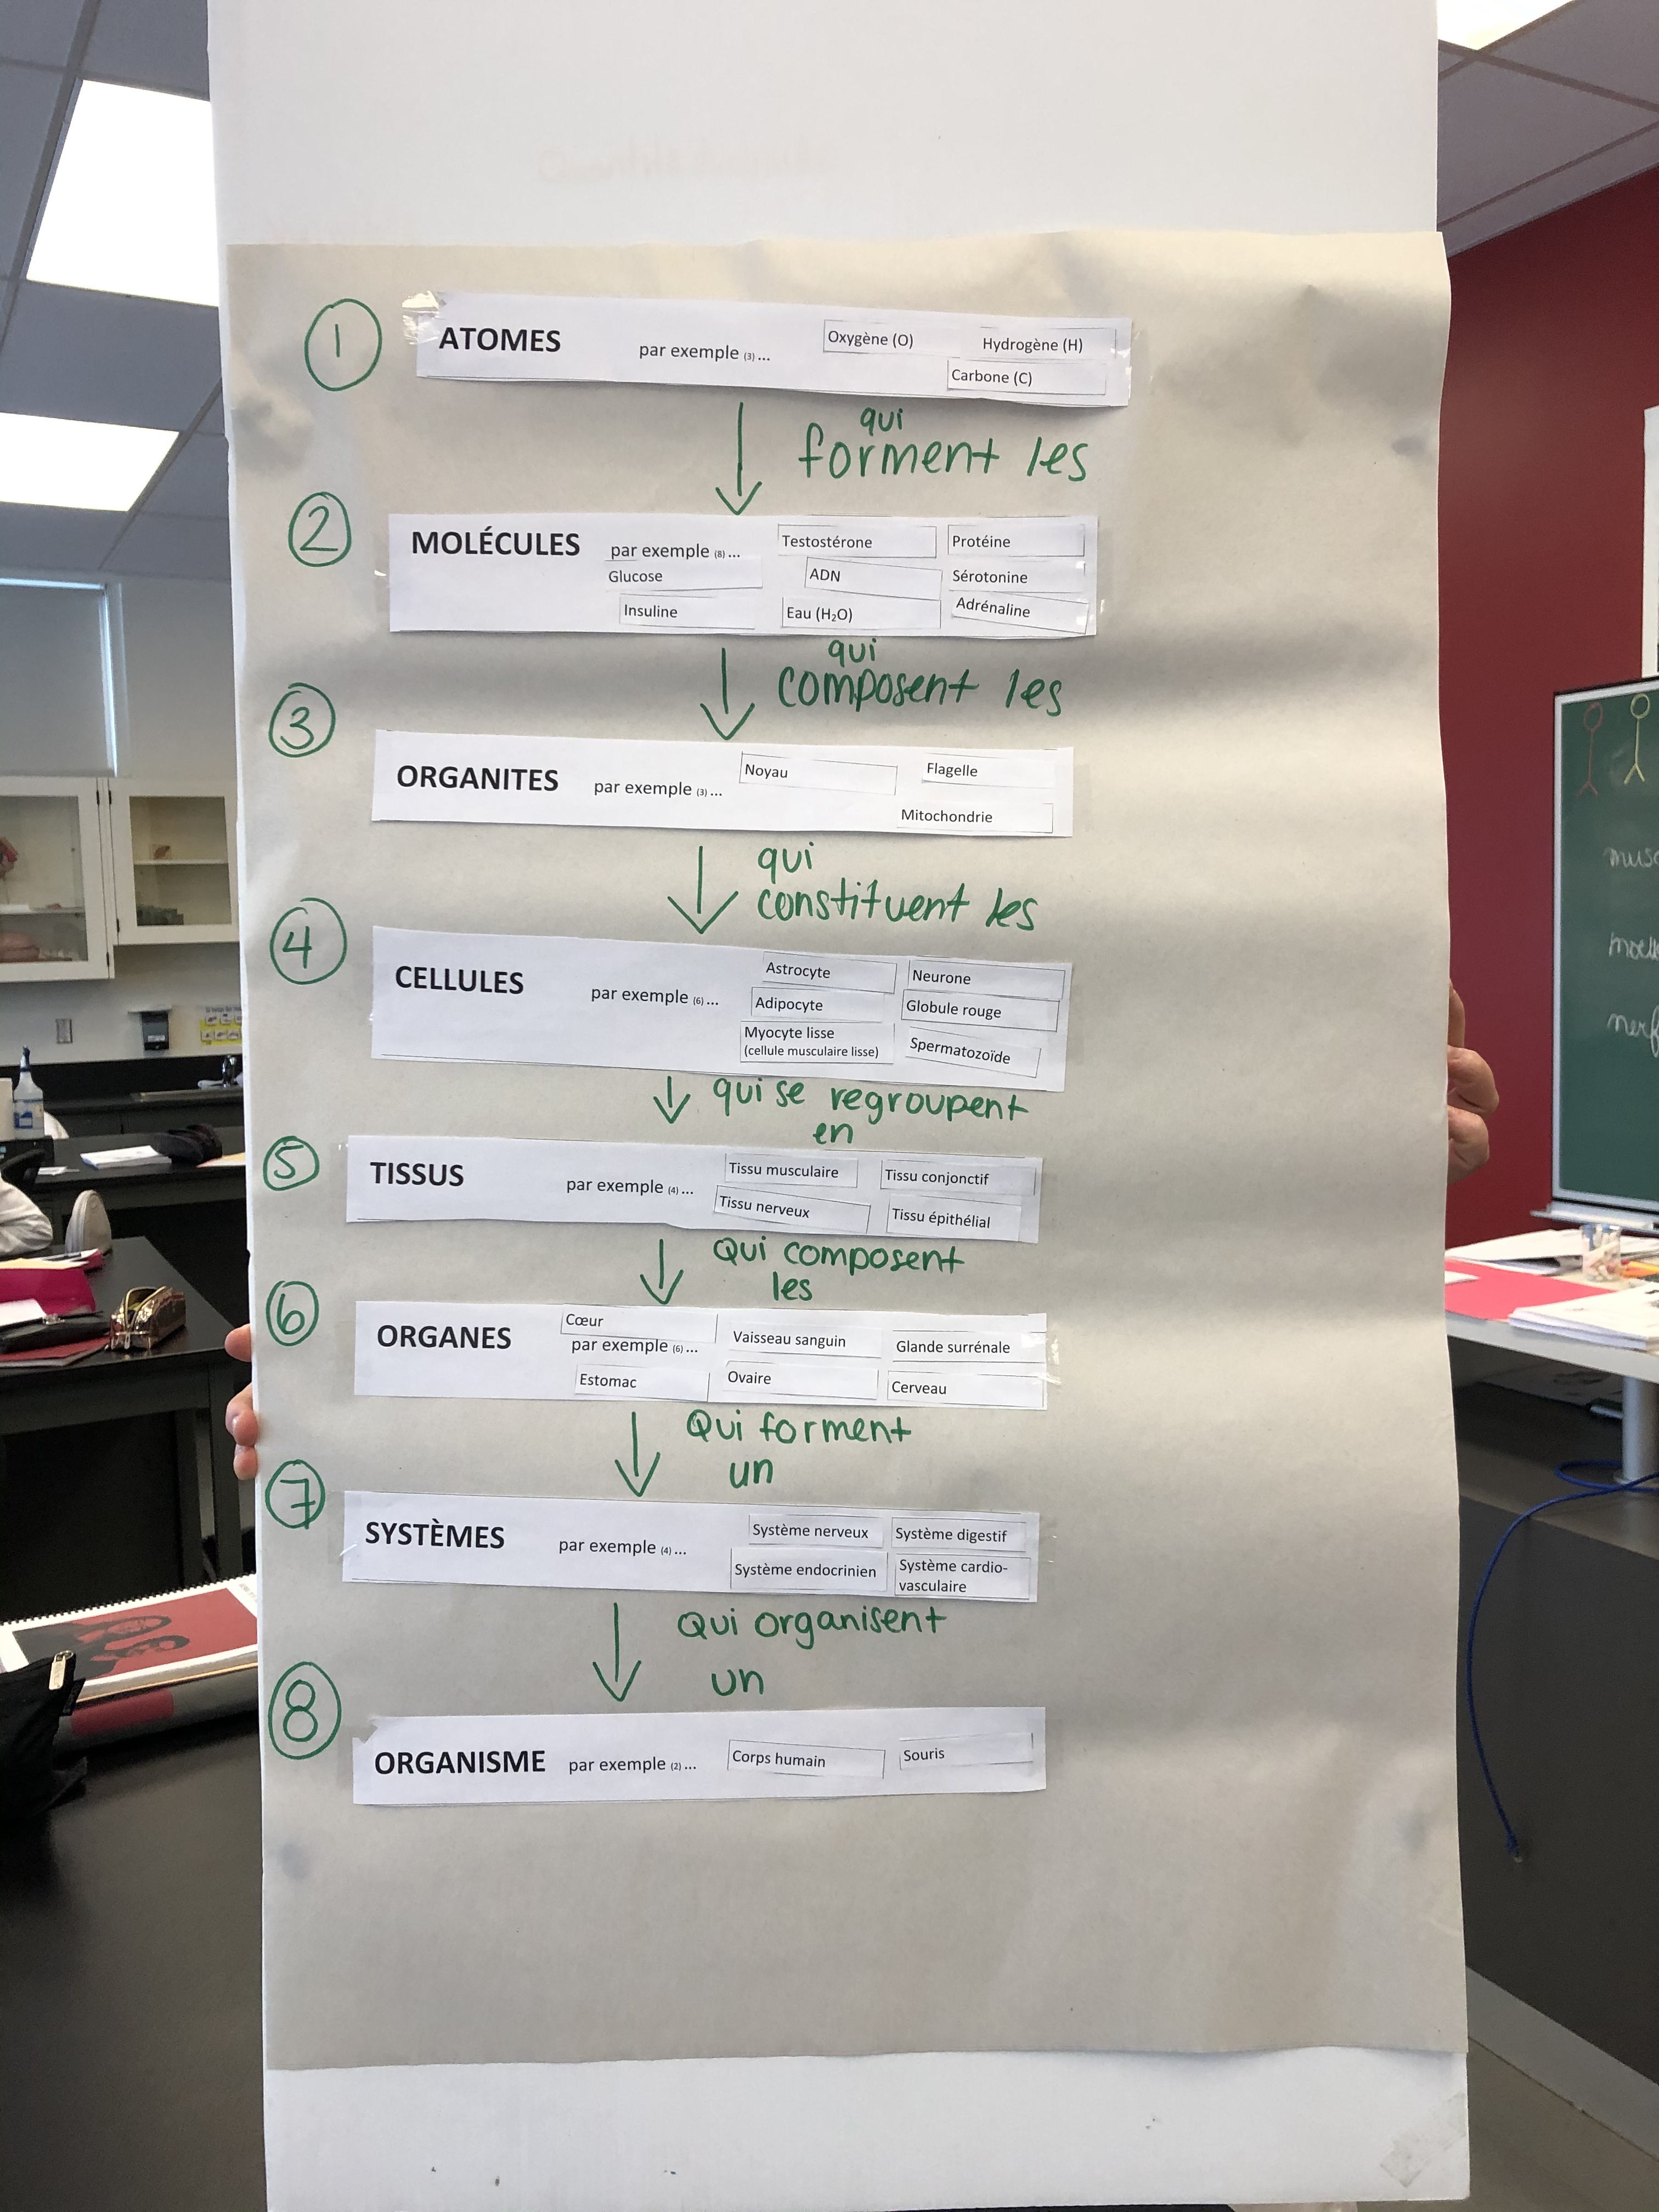 1
ATOMES par exemple (3) ... Oxygène (O) Hydrogène (H)
Carbone (C)
qui
forment les
2
MOLÉCULES par exemple (8) ... Testostérone Protéine
Glucose ADN Sérotonine
Insuline Eau (H₂O) Adrénaline
qui
composent les
3
ORGANITES par exemple (3) ... Noyau Flagelle
Mitochondrie
qui
constituent les
4
CELLULES par exemple (6) ... Astrocyte Neurone
Adipocyte Globule rouge
Myocyte lisse
(cellule musculaire lisse) Spermatozoïde
qui se regroupent
en
5
TISSUS par exemple (4) ... Tissu musculaire Tissu conjonctif
Tissu nerveux Tissu épithélial
Qui composent
les
6
Cœur
ORGANES par exemple (6) ... Vaisseau sanguin Glande surrénale
Estomac Ovaire Cerveau
Qui forment
un
7
SYSTÈMES par exemple (4) ... Système nerveux Système digestif
Système endocrinien Système cardio-
vasculaire
Qui organisent
un
8
ORGANISME par exemple (2) ... Corps humain Souris